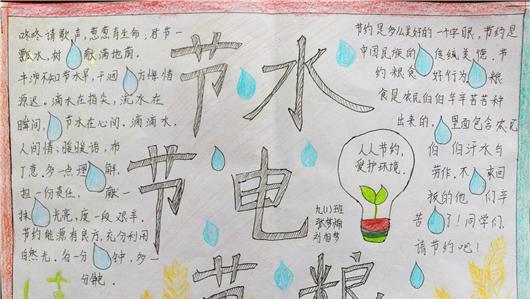 咚咚请歌声,愿愿有生命,君节一
飘水,树献满地南。
丰沛不知节水早,干涸方悔惜
源迟。滴水在指尖,流水在
瞬间,节水在心间。滴滴水,
人间情,暖暖语,有
了意,多一点理解,
担一份责任,献一
抹光亮,度一段艰辛。
节约能源有良方,充分利用
自然光。每一分钟,多一
分
节水
节电
节粮
人人节约,
爱护环境。
九(1)班
张梦
刘相梦
节约是多么美好的一个字眼,节约是
中国民族的传统美德,节
约粮食好行为,粮
食是农民伯伯辛辛苦苦种
出来的,里面包含农民
伯伯汗水与
劳作,不索回
报的他们辛
苦了!同学们,
请节约吧!